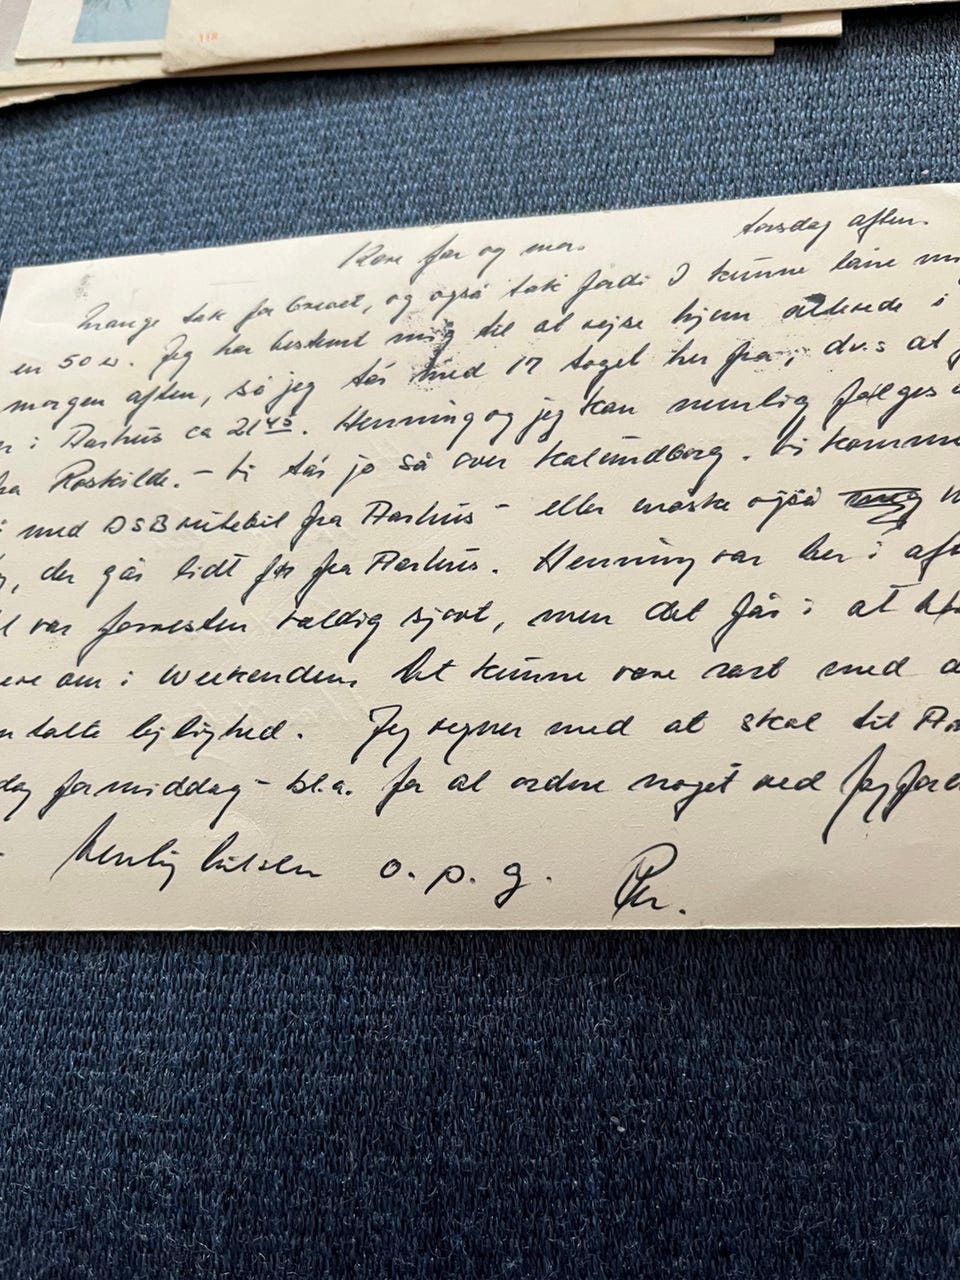 118
torsdag aften.
Kære far og mor.
Mange tak for brevet, og også tak fordi I kunne låne
en 50 er. Jeg har bestemt mig til at rejse hjem allerede i
morgen aften, så jeg tar med 17 toget her fra, dvs at
i Aarhus ca 21 45. Henning og jeg kan nemlig følges
Roskilde. - Vi tar jo så over Kalundborg. Vi
med DSB rutebil fra Aarhus - eller måske også
der går lidt før fra Aarhus. Henning var her i
var forresten vældig sjovt, men det får i at
om i weekenden. Det kunne være rart med
lejlighed. Jeg regner med at skal til
formiddag - bl.a. for at ordne noget ved
Venlig hilsen o. p. g.